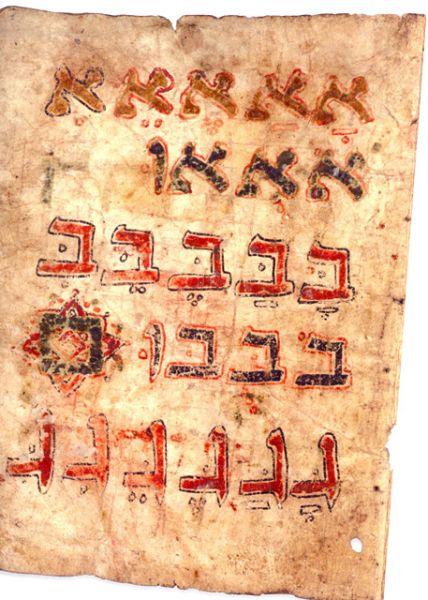 אָ אַ אֶ אֵ אִ
א א או
בָּ בַּ בֶּ בֵּ בִּ
ב ב בו
גָּ גַּ גֶּ גֵּ גִּ ג